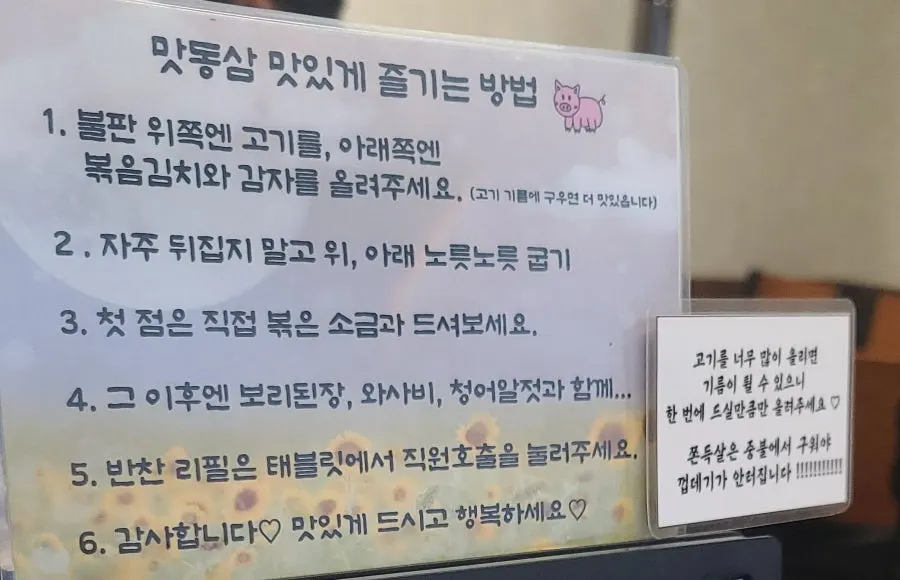 맛동삼 맛있게 즐기는 방법
1. 불판 위쪽엔 고기를, 아래쪽엔
볶음김치와 감자를 올려주세요. (고기 기름에 구우면 더 맛있습니다)
2. 자주 뒤집지 말고 위, 아래 노릇노릇 굽기
3. 첫 점은 직접 볶은 소금과 드셔보세요.
4. 그 이후엔 보리된장, 와사비, 청어알젓과 함께...
5. 반찬 리필은 태블릿에서 직원호출을 눌러주세요.
6. 감사합니다♡ 맛있게 드시고 행복하세요♡
고기를 너무 많이 올리면
기름이 튈 수 있으니
한 번에 드실만큼만 올려주세요 ♡
쫀득살은 중불에서 구워야
껍데기가 안터집니다 !!!!!!!!!!!